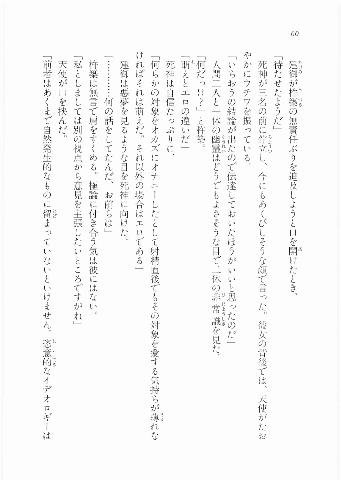 60
建御が杵築の無責任ぶりを追及しようと口を開けたとき、
「待たせたようだ」
死神が三名の前に佇立し、今にもあくびしそうな顔で言った。彼女の背後では、天使がたお
やかにウチワを振っている。
「いちおうの結論が出たので伝達しておいたほうがいいと思ったのだ」
人間二人と一体の幽霊はどうでもよさそうな目で二体の非常識を見た。
「何だっけ？」と杵築。
「萌えとエロの違いだ」
死神は自信たっぷりに、
「何らかの対象をオカズにオナニーしたとして射精直後でもその対象を愛する気持ちが薄れな
ければそれは萌えだ。それ以外の場合はエロである」
建御は悪夢を見るような目を死神に向けた。
「…………何の話をしてたんだ、お前らは」
杵築は無言で肩をすくめる。極論に付き合う気は彼にはない。
「私としましては別の視点から意見を主張したいところですがれ」
天使が口を挟んだ。
「前者はあくまで自然発生的なものに留まっていないといけません。恣意的なイデオロギーは